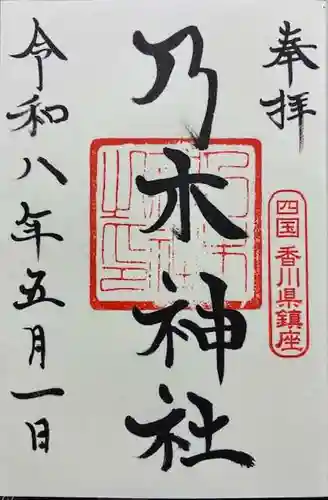 奉拝
四国 香川県鎮座
乃木神社
令和八年五月一日